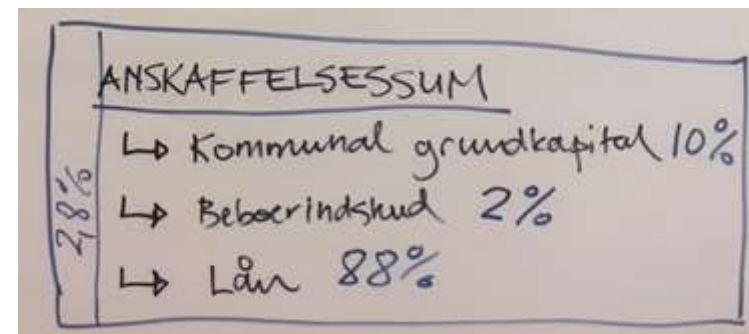 ANSKAFFELSESSUM
↳ Kommunal grundkapital 10%
↳ Beboerindskud 2%
↳ Lån 88%
2,8%